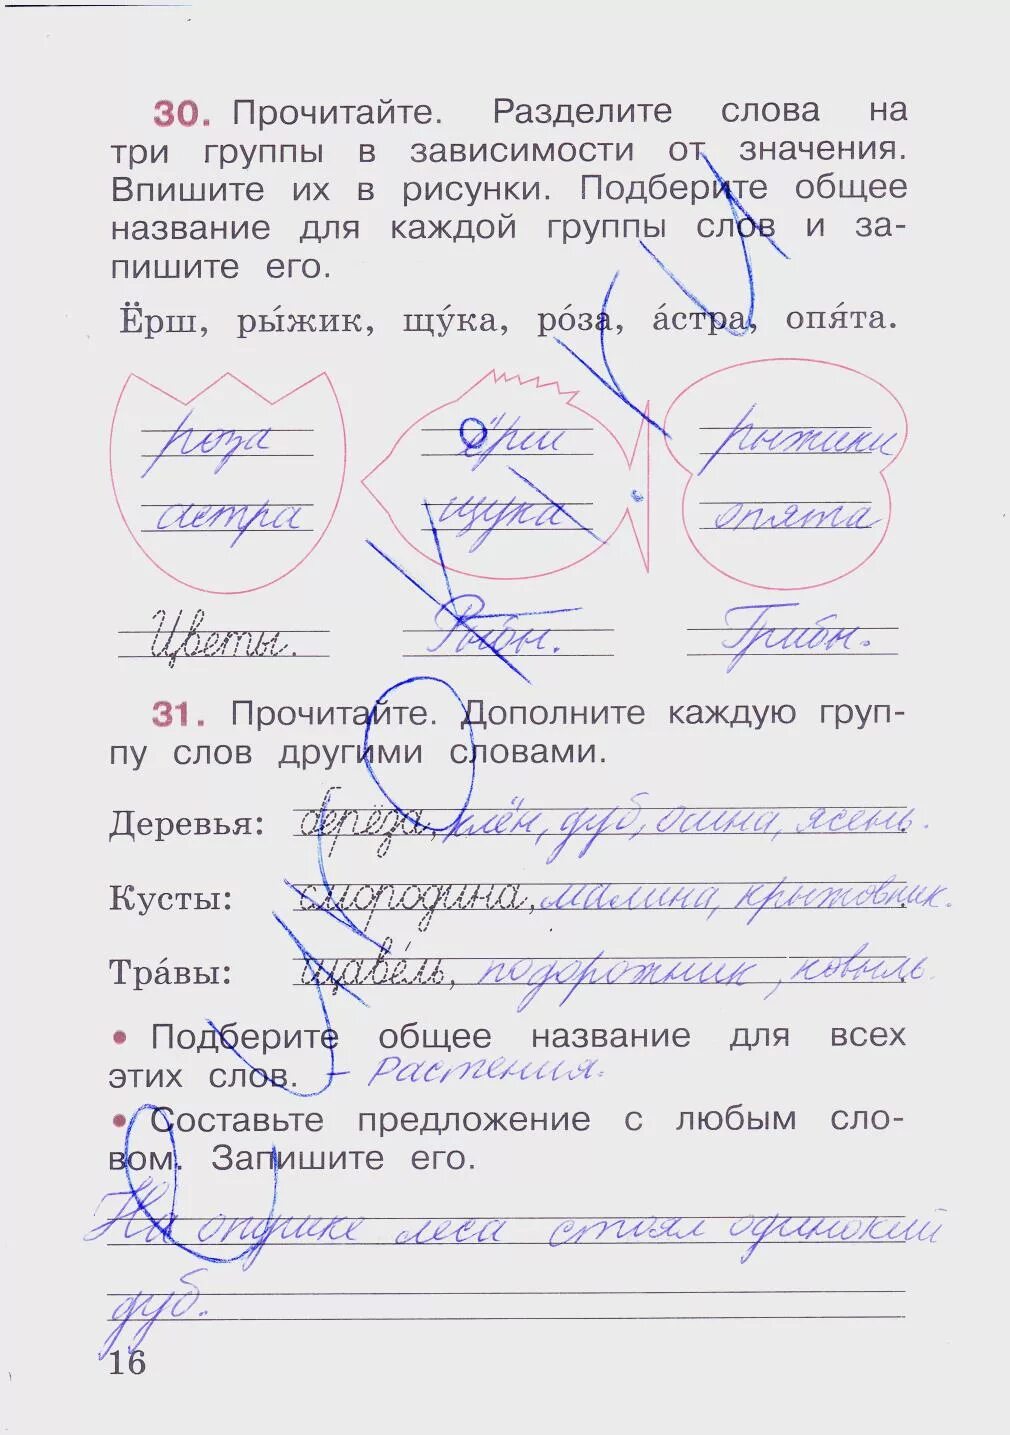 30. Прочитайте. Разделите слова на
три группы в зависимости от значения.
Впишите их в рисунки. Подберите общее
название для каждой группы слов и за-
пишите его.
Ёрш, ры́жик, щу́ка, ро́за, а́стра, опя́та.
роза ёрш рыжики
астра щука опята
Цветы. Рыбы. Грибы.
31. Прочитайте. Дополните каждую груп-
пу слов другими словами.
Деревья: берёза, клён, дуб, осина, ясень.
Кусты: смородина, малина, крыжовник.
Тра́вы: щаве́ль, подорожник, ковыль.
• Подберите общее название для всех
этих слов. – Растения.
• Составьте предложение с любым сло-
вом. Запишите его.
На опушке леса стоял одинокий
дуб.
16